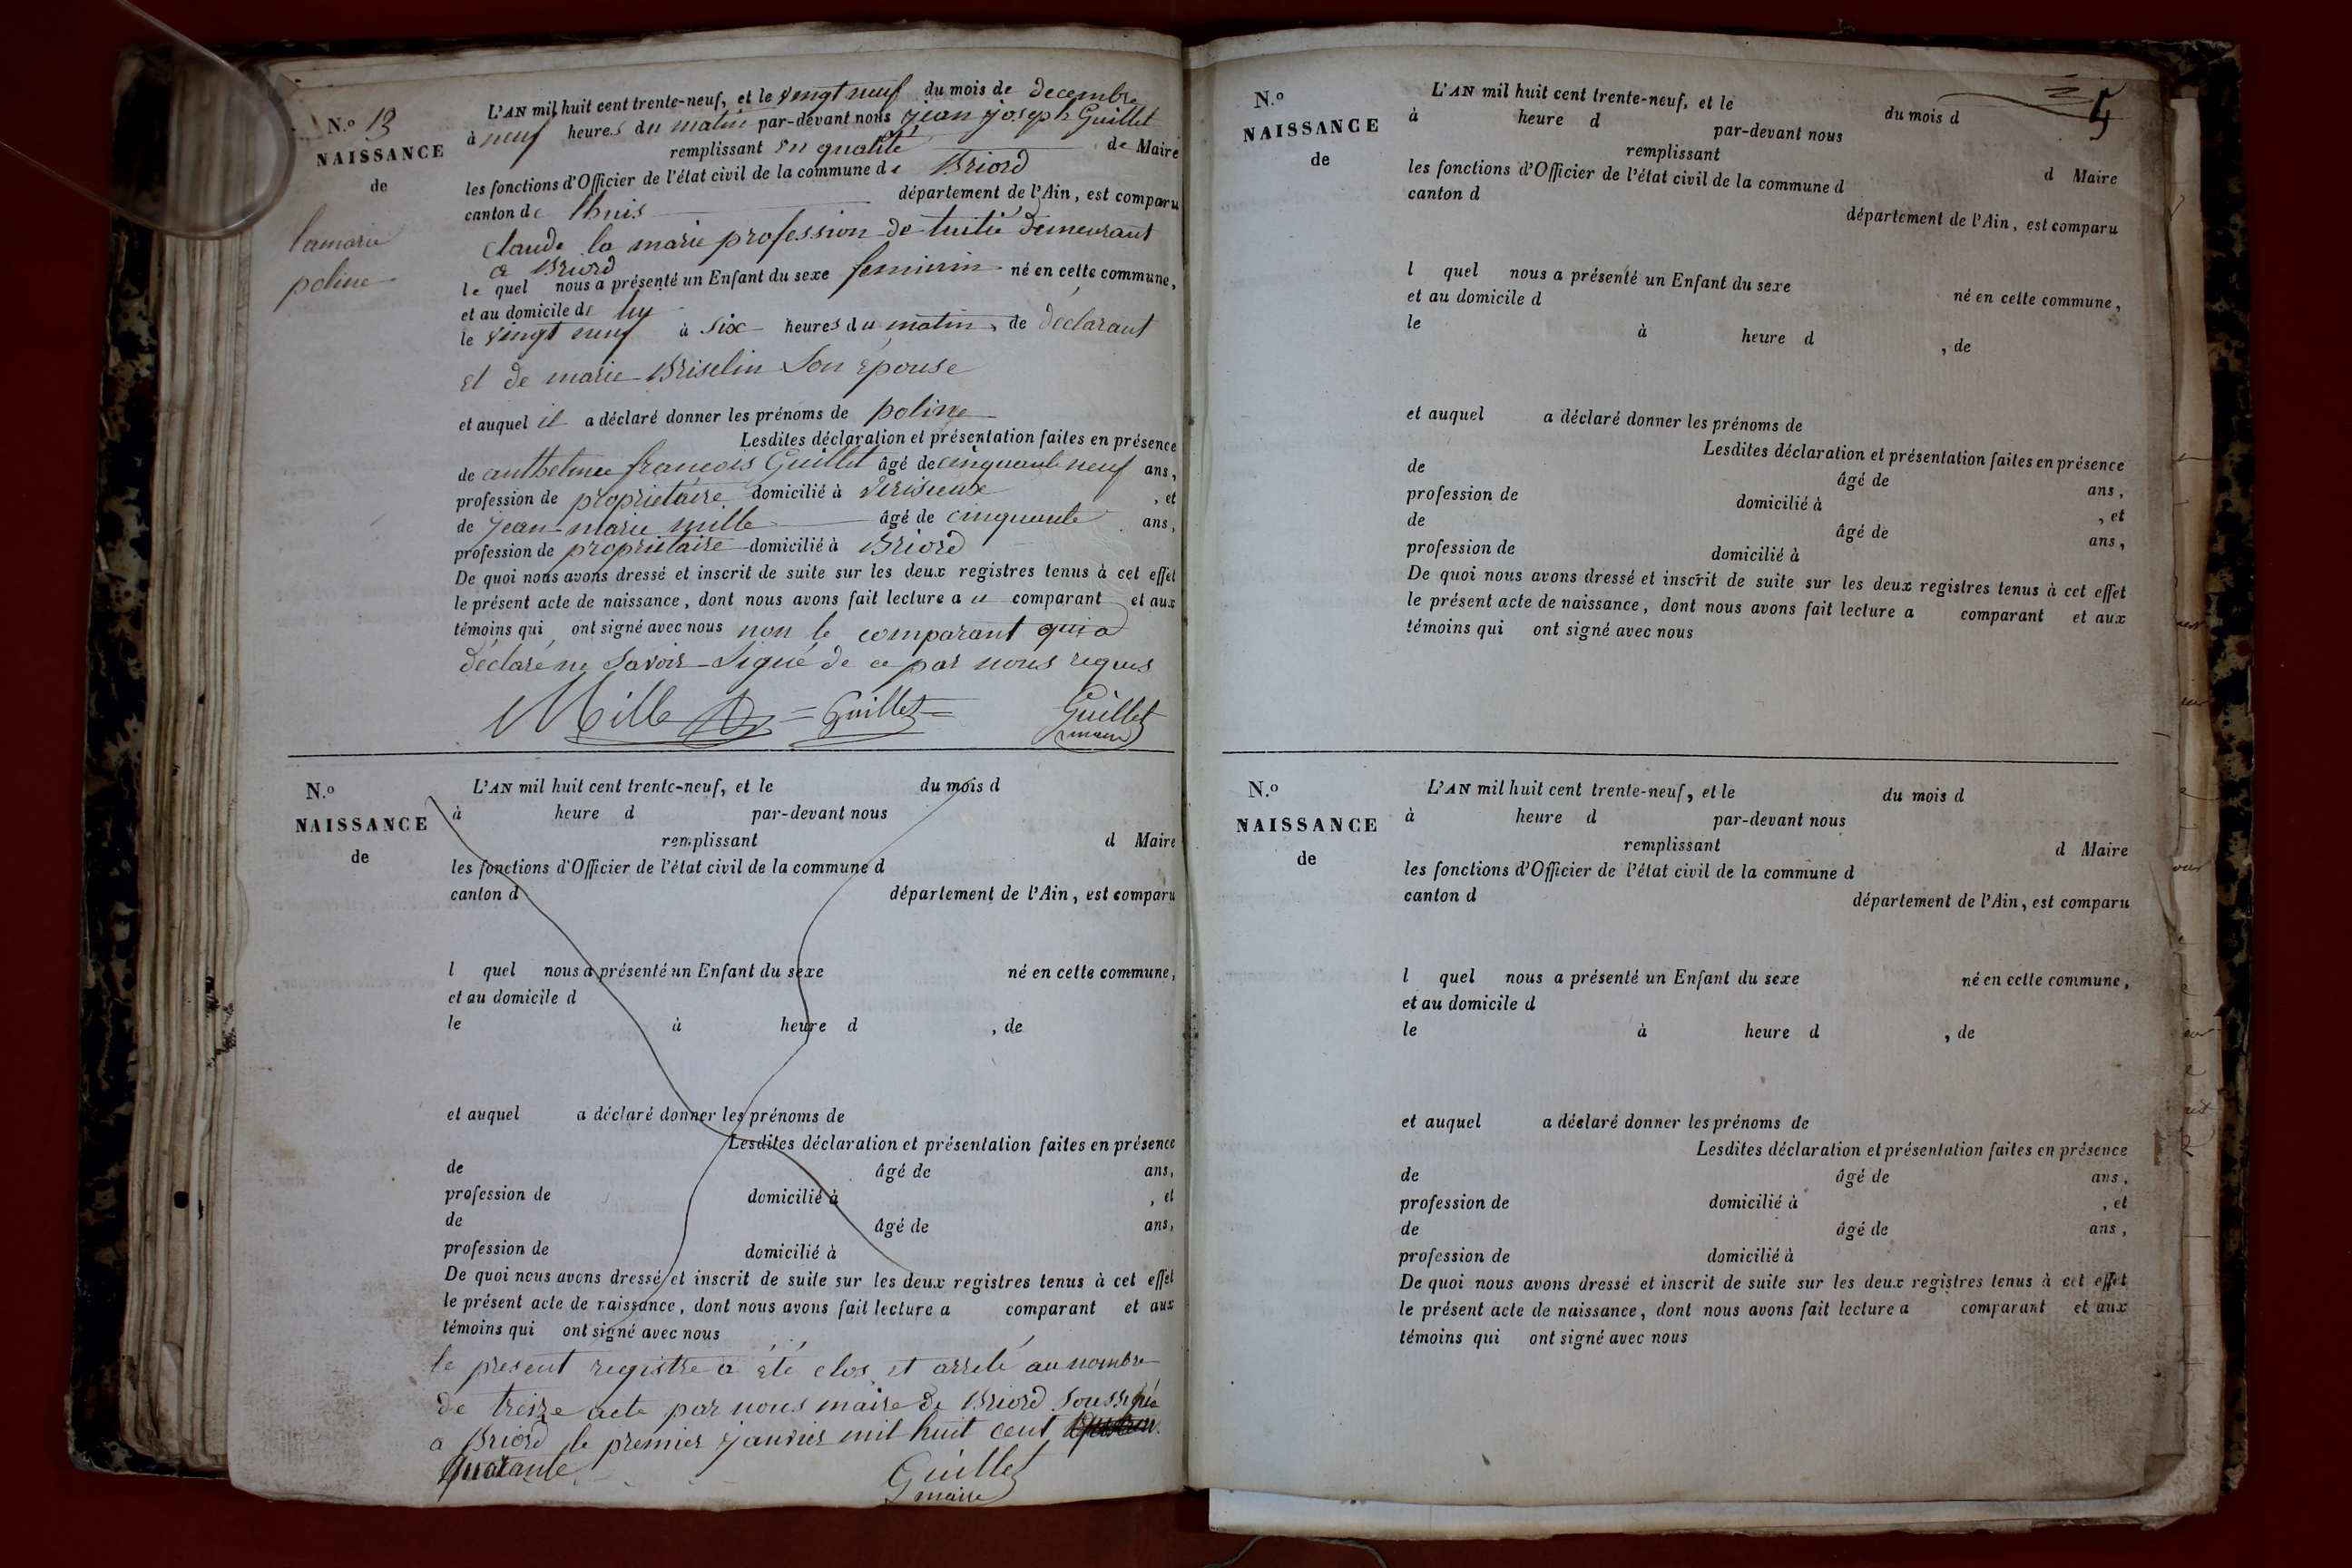 N.o 13
NAISSANCE
de
lamarie
poline
L'AN mil huit cent trente-neuf, et le vingt neuf du mois de decembre
à neuf heures du matin par-devant nous jean joseph Guillet
remplissant en qualité de Maire
les fonctions d'Officier de l'état civil de la commune de Briord
canton de lhuis département de l'Ain, est comparu
claude la marie profession de tuilié demeurant
a Briord
le quel nous a présenté un Enfant du sexe feminin né en cette commune,
et au domicile de luy
le vingt neuf à six heures du matin, de déclarant
et de marie Briselin son épouse
et auquel il a déclaré donner les prénoms de poline
Lesdites déclaration et présentation faites en présence
de anthelme francois Guillet âgé de cinquante neuf ans,
profession de propriétaire domicilié à verisieux, et
de jean marie mille âgé de cinquante ans,
profession de propriétaire domicilié à Briord
De quoi nous avons dressé et inscrit de suite sur les deux registres tenus à cet effet
le présent acte de naissance, dont nous avons fait lecture au comparant et aux
témoins qui ont signé avec nous non le comparant qui a
déclaré ne savoir signé de ce par nous requis
Mille Guillet Guillet
maire
N.o
NAISSANCE
de
L'AN mil huit cent trente-neuf, et le du mois d
à heure d par-devant nous
remplissant d Maire
les fonctions d'Officier de l'état civil de la commune d
canton d département de l'Ain, est comparu
l quel nous a présenté un Enfant du sexe né en cette commune,
et au domicile d
le à heure d , de
et auquel a déclaré donner les prénoms de
Lesdites déclaration et présentation faites en présence
de âgé de ans,
profession de domicilié à , et
de âgé de ans,
profession de domicilié à
De quoi nous avons dressé et inscrit de suite sur les deux registres tenus à cet effet
le présent acte de naissance, dont nous avons fait lecture a comparant et aux
témoins qui ont signé avec nous
le present registre a été clos et arrelé au nombre
de treize acte par nous maire de Briord soussigné
a Briord le premier janvier mil huit cent
quarante
Guillet
maire
5
N.o
NAISSANCE
de
L'AN mil huit cent trente-neuf, et le du mois d
à heure d par-devant nous
remplissant d Maire
les fonctions d'Officier de l'état civil de la commune d
canton d département de l'Ain, est comparu
l quel nous a présenté un Enfant du sexe né en cette commune,
et au domicile d
le à heure d , de
et auquel a déclaré donner les prénoms de
Lesdites déclaration et présentation faites en présence
de âgé de ans,
profession de domicilié à , et
de âgé de ans,
profession de domicilié à
De quoi nous avons dressé et inscrit de suite sur les deux registres tenus à cet effet
le présent acte de naissance, dont nous avons fait lecture a comparant et aux
témoins qui ont signé avec nous
N.o
NAISSANCE
de
L'AN mil huit cent trente-neuf, et le du mois d
à heure d par-devant nous
remplissant d Maire
les fonctions d'Officier de l'état civil de la commune d
canton d département de l'Ain, est comparu
l quel nous a présenté un Enfant du sexe né en cette commune,
et au domicile d
le à heure d , de
et auquel a déclaré donner les prénoms de
Lesdites déclaration et présentation faites en présence
de âgé de ans,
profession de domicilié à , et
de âgé de ans,
profession de domicilié à
De quoi nous avons dressé et inscrit de suite sur les deux registres tenus à cet effet
le présent acte de naissance, dont nous avons fait lecture a comparant et aux
témoins qui ont signé avec nous